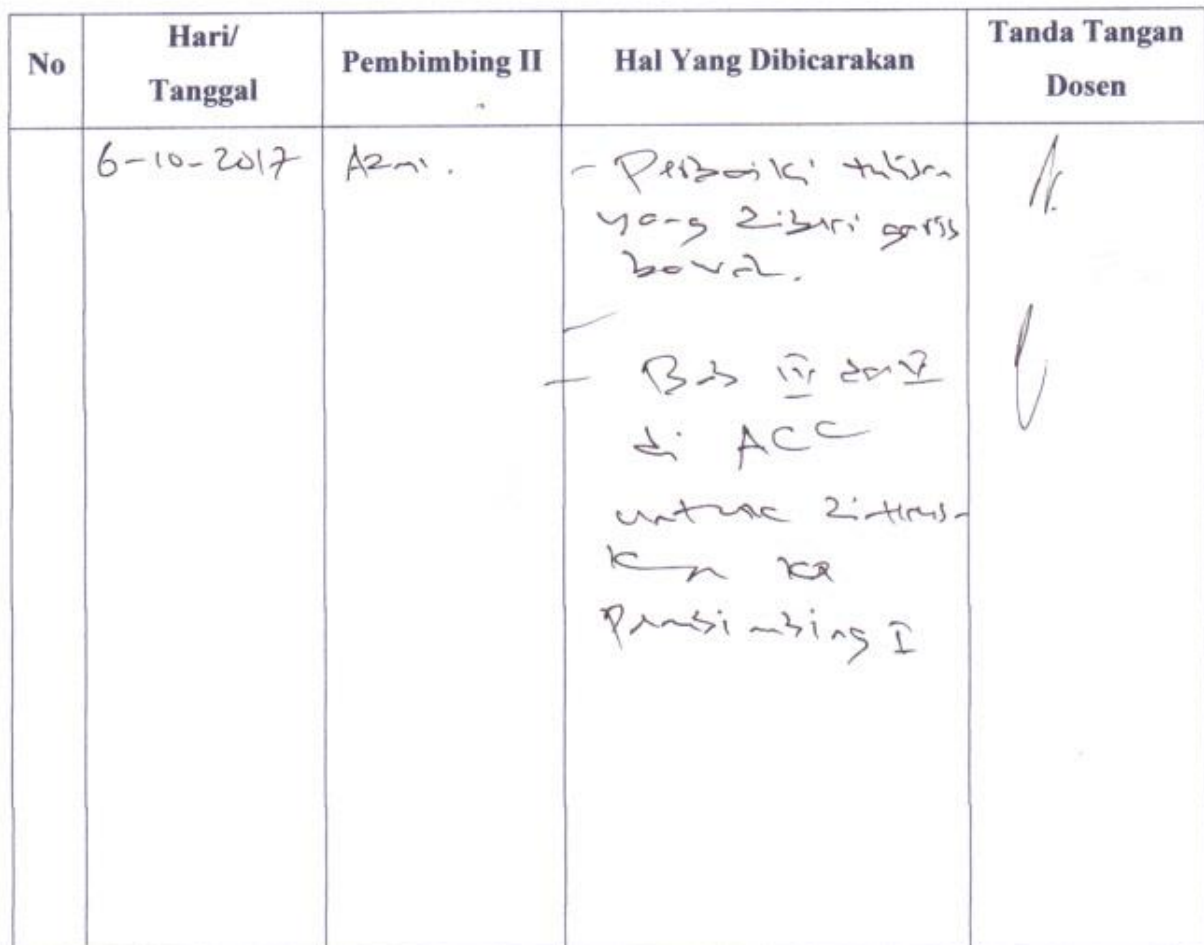 No
Hari/
Tanggal
Pembimbing II
Hal Yang Dibicarakan
Tanda Tangan
Dosen
6-10-2017
Azmi.
- Perbaiki tulisan
yang diberi garis
bawah.
- Bab IV dan V
di ACC
untuk diterus-
kan ke
Pembimbing I